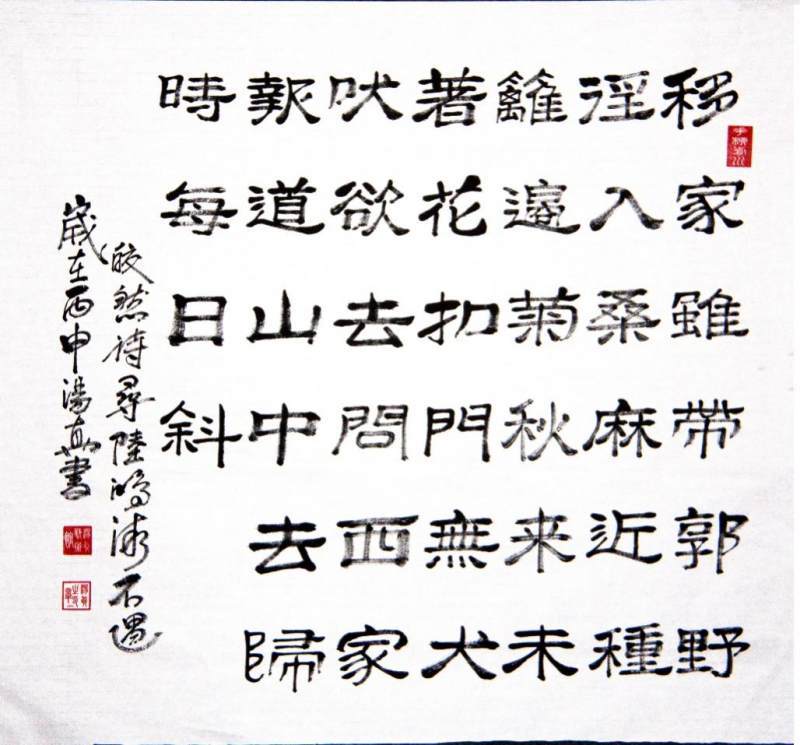 移家雖帶郭野
徑入桑麻近種
籬邊菊秋来未
著花扣門無犬
吠欲去問西家
報道山中去歸
時每日斜
皎然詩尋陸鴻漸不遇
歲在丙申湯真書